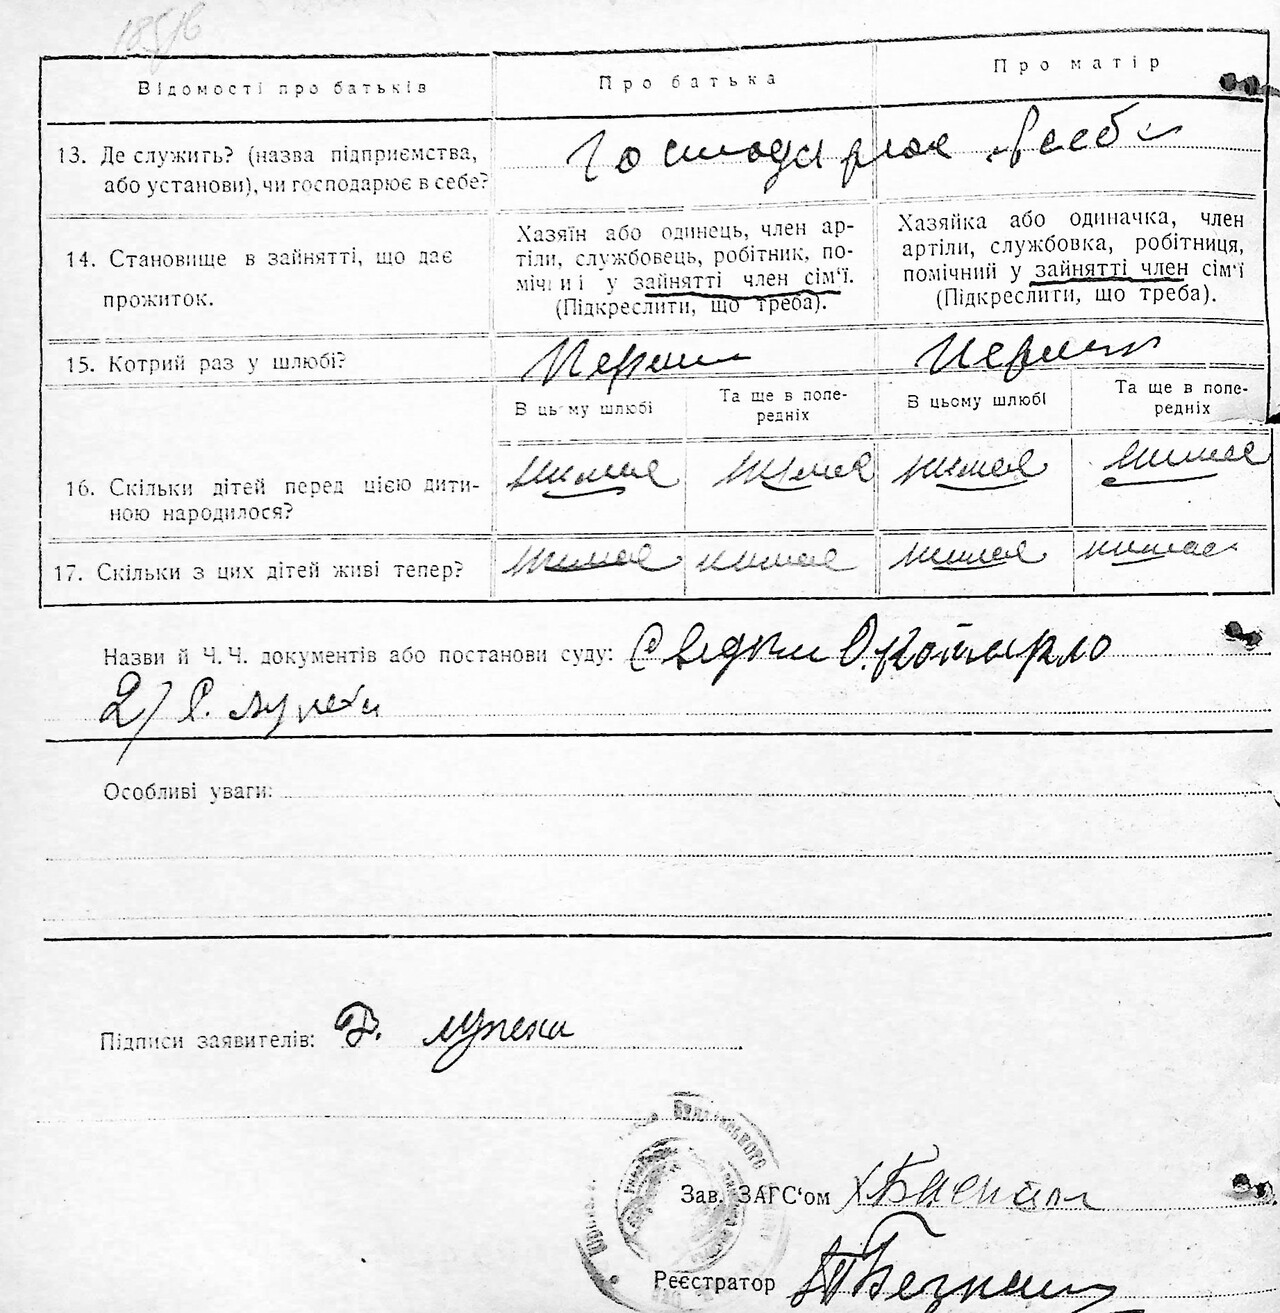 Відомості про батьків
Про батька
Про матір
13. Де служить? (назва підприємства,
або установи), чи господарює в себе?
Господарює в себе
14. Становище в зайнятті, що дає
прожиток.
Хазяїн або одинець, член ар-
тіли, службовець, робітник, по-
мічний у зайнятті член сім'ї.
(Підкреслити, що треба).
Хазяйка або одиначка, член
артіли, службовка, робітниця,
помічний у зайнятті член сім'ї
(Підкреслити, що треба).
15. Котрий раз у шлюбі?
Перший
Перший
В цьому шлюбі
Та ще в попе-
редніх
В цьому шлюбі
Та ще в попе-
редніх
16. Скільки дітей перед цією дити-
ною народилося?
нимає нимає нимає нимає
17. Скільки з цих дітей живі тепер?
нимає нимає нимає нимає
Назви й Ч.Ч. документів або постанови суду: Свідки
2/
Особливі уваги:
Підписи заявителів:
Зав. ЗАГС'ом
Реєстратор